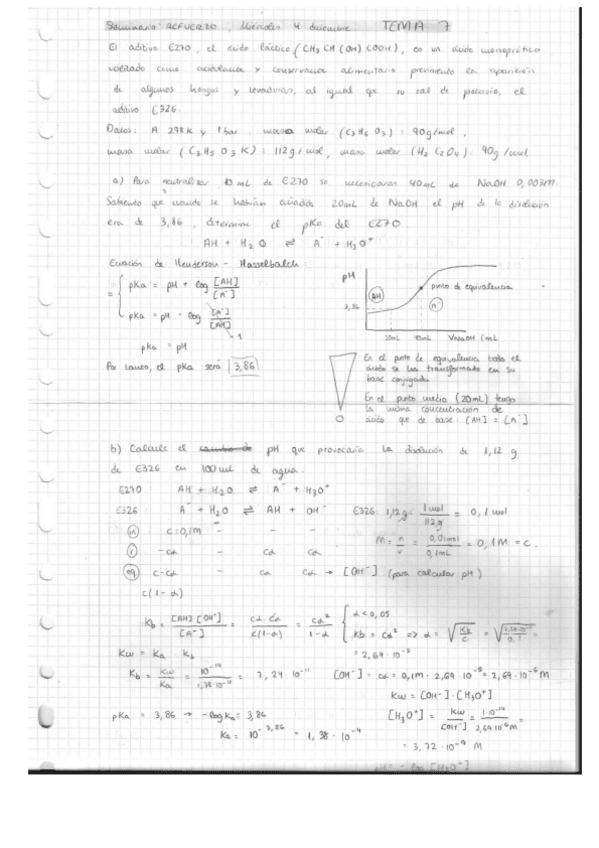 Seminario REFUERZO, Miércoles 4 diciembre TEMA 7
El aditivo E270, el ácido láctico (CH3 CH (OH) COOH), es un ácido monoprótico
utilizado como acidulante y conservante alimentario previniendo la aparición
de algunos hongos y levaduras, al igual que su sal de potasio, el
aditivo E326.
Datos: A 298K y 1 bar. masa molar (C3H6O3): 90g/mol,
masa molar (C3H5O3K): 112g/mol, masa molar (H2C2O4): 90g/mol
a) Para neutralizar 10 mL de E270 se necesitaron 40mL de NaOH 0,003M.
Sabiendo que cuando se habían añadido 20mL de NaOH el pH de la disolución
era de 3,86, determine el pKa del E270.
AH + H2O ⇌ A⁻ + H3O⁺
Ecuación de Henderson - Hasselbalch:
= { pKa = pH + log [AH]/[A⁻]
pKa = pH - log [A⁻]/[AH] → 1
pKa = pH
Por tanto, el pKa será 3,86
pH
AH
punto de equivalencia
3,86
A⁻
20mL 40mL VNaOH (mL)
En el punto de equivalencia todo el
ácido se ha transformado en su
base conjugada
En el punto medio (20mL) tengo
la misma concentración de
ácido que de base: [AH] = [A⁻]
b) Calcule el pH que provocaría la disolución de 1,12 g
de E326 en 100 mL de agua.
E270: AH + H2O ⇌ A⁻ + H3O⁺
E326: A⁻ + H2O ⇌ AH + OH⁻ E326: 1,12g · 1mol/112g = 0,1 mol
(in) c=0,1M - - -
-cα cα cα
M = n/v = 0,01mol/0,1mL = 0,1M = c.
(eq) c-cα - cα cα → [OH⁻] (para calcular pH)
c(1-α)
Kb = [AH]·[OH⁻]/[A⁻] = cα·cα/c(1-α) = cα²/1-α { α<0,05
Kb = cα² => α = √Kb/c =
Kw = Ka · Kb
= 2,69·10⁻⁵
Kb = Kw/Ka = 10⁻¹⁴/1,38·10⁻⁴ = 7,24·10⁻¹¹ [OH⁻] = cα = 0,1M · 2,69·10⁻⁵ = 2,69·10⁻⁶ M
Kw = [OH⁻]·[H3O⁺]
pKa = 3,86 → -logKa = 3,86 [H3O⁺] = Kw/[OH⁻] = 1·10⁻¹⁴/2,69·10⁻⁶M =
Ka = 10⁻³,⁸⁶ = 1,38·10⁻⁴
= 3,72·10⁻⁹ M
pH = - log [H3O⁺]